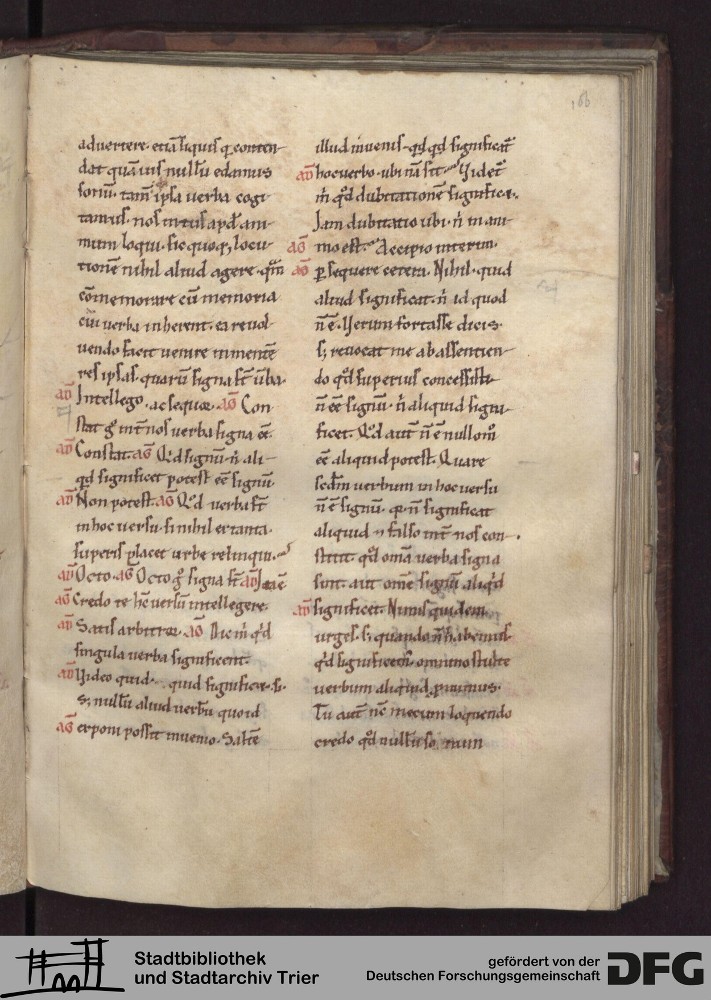 166
advertere. etiā si quis q̄ conten
dat quāuis nullū edamus
sonū. tam̄ ipsa uerba cogi
tamus. nos intus apd̄ ani
mum loqui. sic quoq; locu
tionē nihil aliud agere. qm̄
cōmemorare cū memoria
cui uerba inherent. ea reuol
uendo facit uenire in mentē
res ipsas. quarū signa st̄ ūba.
ad̄ Intellego. ac sequor. aḡ Con
stat g̊ int̄ nos uerba signa eē.
ad̄ Constat. aḡ Q̊d signū n̄ ali
qd̄ significet potest eē signū
ad̄ Non potest. aḡ Q̊d uerba st̄
in hoc uersu. si nihil ex tanta.
superis placet urbe relinqui.
ad̄ Octo. aḡ Octo g̊ signa st̄. ad̄ Ita ē
aḡ Credo te hc̄ uersū intellegere.
ad̄ Satis arbitror. aḡ Dic m̄ q̊d
singula uerba significent.
ad̄ Uideo quid significet. si.
S; nullū aliud uerbū quo id
aḡ exponi possit inuenio. Saltē
illud inuenis. qd̄qd̄ significat̄
ad̄ hoc uerbo. ubi nā sit. Uidet̄
m̄ q̊d dubitationē significet.
Jam dubitatio ubi. n̄ in ani
aḡ mo est. Accipio interim.
aḡ p̱sequere cetera. Nihil. quid
aliud significat. n̄ id quod
n̄ ē. Uerum fortasse dicis.
s; reuocat me ab assentien
do q̊d superius concessisti.
n̄ eē signū. n̄ aliquid signi
ficet. Q̊d aut̄ n̄ ē nullom̊
eē aliquid potest. Quare
scdm̄ uerbum in hoc uersu
n̄ ē signū. q̄ n̄ significat
aliquid. & falso int̄ nos con
stitit. q̊d om̄a uerba signa
sint. aut om̄e signū aliq̊d
ad̄ significet. Nimis quidem
urges. s; quando n̄ habemus.
q̊d significem̄. omnino stulte
uerbum aliquid promimus.
Tu aut̄ nc̄ mecum loquendo
credo q̊d nullū sonum
Stadtbibliothek
und Stadtarchiv Trier
gefördert von der
Deutschen Forschungsgemeinschaft
DFG